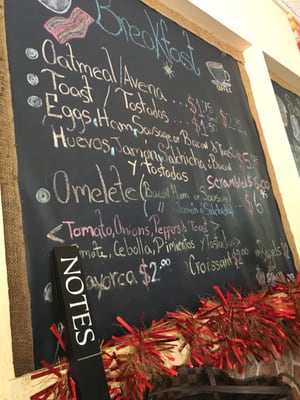 Breakfast
Oatmeal/Avena . . . $1.75
Toast / Tostadas . . . $1.50
Eggs, Ham, Sausage or Bacon & Toast
Huevos, Jamón, Salchicha, Bacon
y Tostadas
Scrambled
Omelete (Bacon, Ham or Sausage)
Jamón o Salchicha
Tomato, Onions, Peppers & Toast
Cebolla, Pimientos y Tostadas
$2.00
Croissant $2.00
NOTES